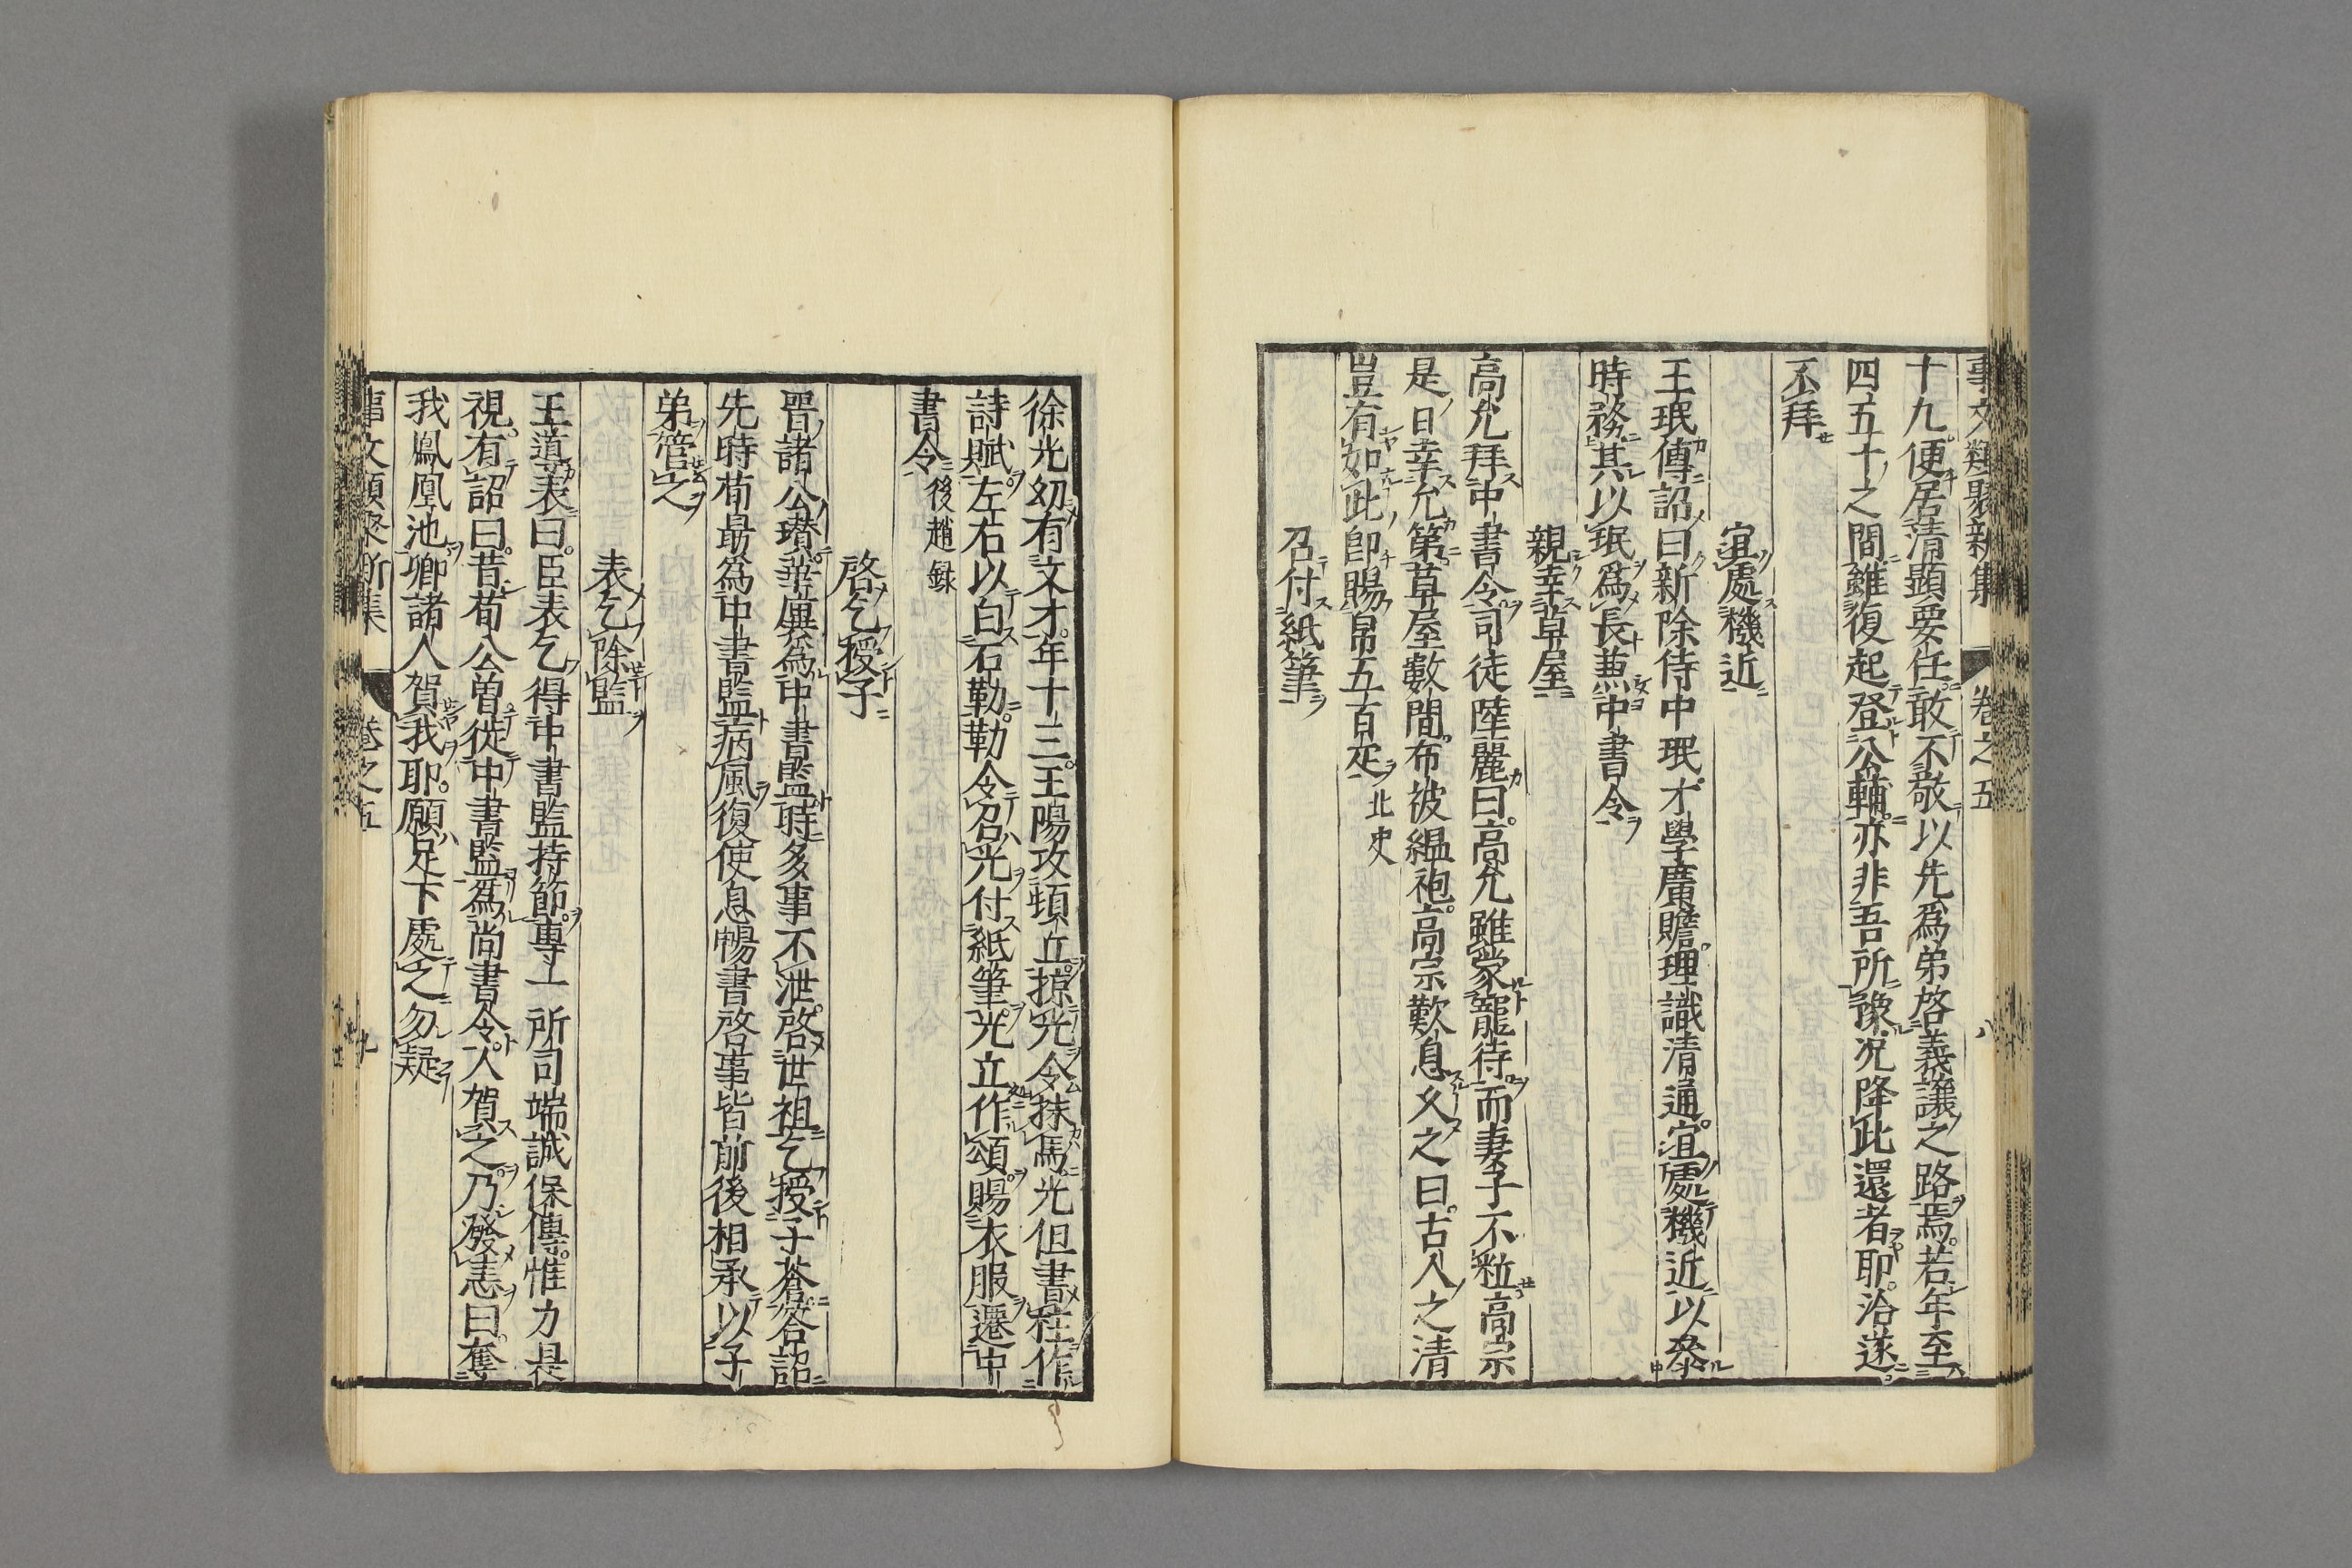 事文類聚新集 卷之五 八
十九便居清顯要任敢不敬以先爲弟啓義讓之路焉若年至
四五十之間雖復起登公輔亦非吾所豫況降此還者耶洽遂
不拜
宜處機近
王珉傳詔曰新除侍中珉才學廣贍理識清通宜處機近以叅
時務其以珉爲長兼中書令
親幸草屋
高允拜中書令司徒陸麗曰高允雖蒙寵待而妻子不粒高宗
是日幸允第草屋數間布被縕袍高宗歎息久之曰古人之清
豈有如此即賜帛五百疋 北史
召付紙筆
徐光幼有文才年十三王陽攻頓丘掠光令抹馬光但書柱作
詩賦左右以白石勒勒令召光付紙筆光立作頌賜衣服遷中
書令 後趙録
啓乞授子
晋諸公瓚華廙爲中書監時多事不泄啓世祖乞授子蒼荅詔
先時荀勗爲中書監病風復使息暢書啓事皆前後相承以子
弟管之
表乞除監
王導表曰臣表乞得中書監持節專一所司端誠保傅惟力是
視有詔曰昔荀公曽從中書監爲尚書令人賀之乃發恚曰奪
我鳳凰池卿諸人賀我耶願足下處之勿疑
事文類聚新集 卷之五 九